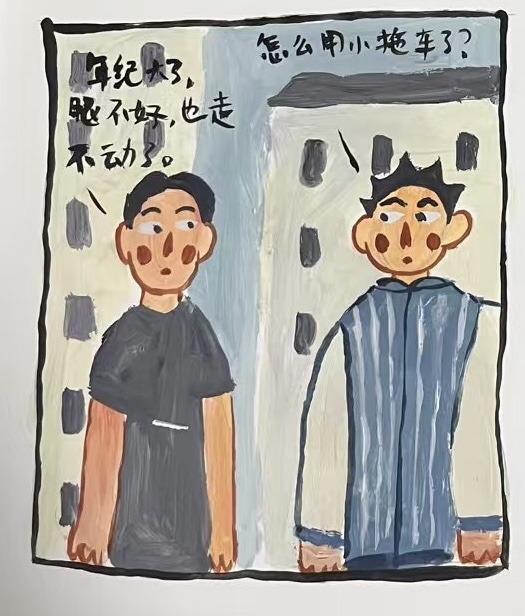 怎么用小拖车了？
年纪大了，
腿不好，也走
不动了。